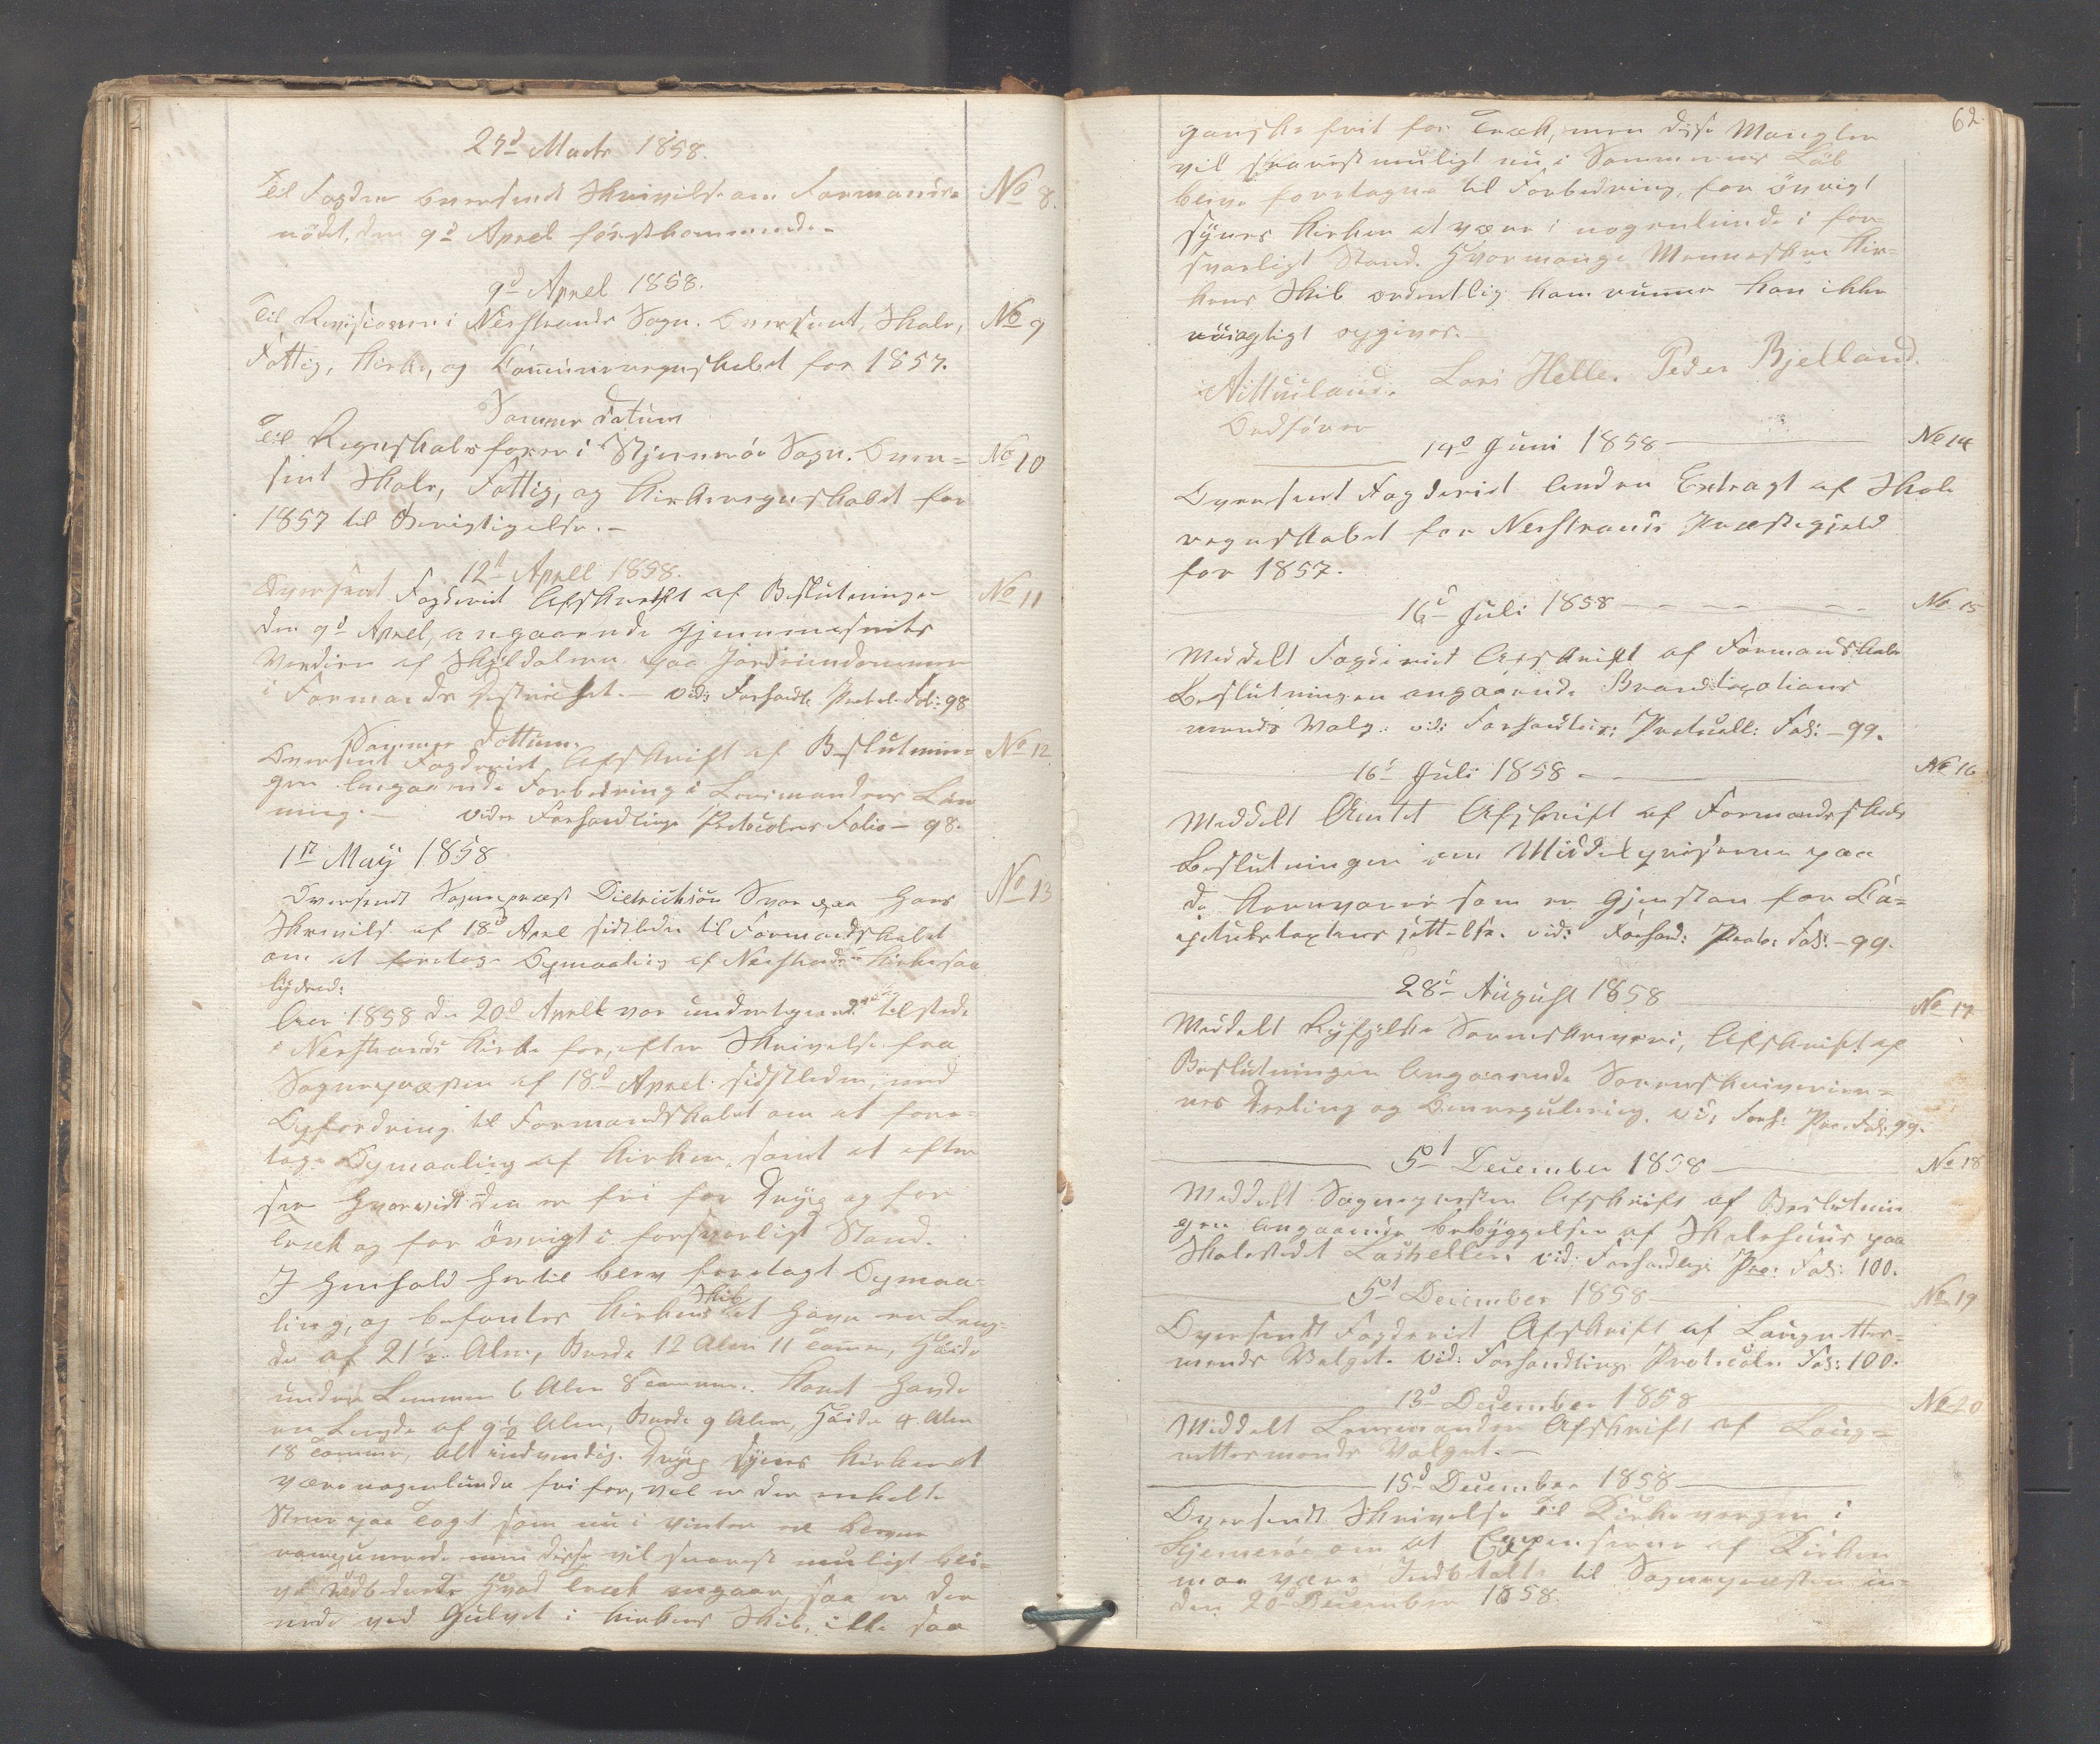 25d Marts 1858.
Til Fogden oversendt Skrivelse om Formands- No 8.
mødet, den 9d Aprel førstkommende.
9d Aprel 1858.
Til Revisionen i Nerstrands Sogn. Oversent, Skole, No 9
Fattig, Kirke, og Communeregnskabet for 1857.
Samme Datum
Til Regnskabsfører i Stjernerøe Sogn. Over= No 10
sent Skole, Fattig, og Kirkeregnskabet for
1857 til Berigtigelse.-
12te Aprell 1858.
Oversent Fogderiet Afskreft af Beslutningen No 11
den 9d Aprel, angaaende Gjennemsnits
Verdien af Skyldaleren paa Jordeiendommen
i Formands Destriktet.- vid: Forhandls Protok. Fol: 98
Samme Dattum.
Oversent Fogderiet Afskrift af Beslutnin= No 12
gen Angaaende Forbedring i Lensmandens Løn
ning.- vider Forhandlings Protocolens Folio - 98.
1te May 1858
Oversendt Sognepræst Dietrichson Svar paa Hans No 13
Skrivels af 18d Aprl sidstleden til Formandskabet
om at foretage Opmaaling af Nerstrands Kirke saa
lydend:
Aar 1858 den 20d Aprell var undertegnede tilstede
i Nerstrands Kirke for, efter Skrivelse fra
Sognepræsten af 18d Aprel sidstleden, med
Opfordring til Formandskabet om at fore=
tage Opmaaling af Kirken, samt at efter
see Hvorvidt den er fri for Dryp og for
Træk og for øvrigt i forsvarligt Stand.
I Henhold hertil blev foretagt Opmaa=
ling, og befantes Kirkens Skib at Have en Leng=
de af 21½ Alen, Brede 12 Alen 11 Tommer, Høide
under Lemmen 6 Alen 8 Tommer. Koret Havde
en Lengde af 9½ Alen, Brede 9 Alen, Høide 4 Alen
18 Tommer, alt indvendig. Dryp synes Kirken at
være nogenlunde fri for, vel er der enkelte
Steen paa Taget som nu i Vinter er bleven
men disse vil snarest muligt bli=
ve udbedrede Hvad Træk angaar, saa er der
nede ved Gulvet i Kirkens Skib, ikke saa
62
ganske frit for Træk, men disse Mangler
vil snarestmuligt nu i Sommerens Løb
blive foretagne til Forbedring, for øvrigt
synes Kirken at være i nogenlunde i for=
svarligt Stand. Hvormange Mennesker Kir=
kens Skib ordentlig kan rumme kan ikke
nøiagtigt opgives.
Lars Helle. Peder Bjelland.
Ordfører
14d Juni 1858 No 14
Oversendt Fogderiet Anden Extragt af Skole
regnskabet for Nerstrands Præstegjeld
for 1857.
16d Juli 1858 No 15
Meddelt Fogderiet Afskrift af Formandskabs
Beslutningen angaaende Brandtaxations
mends Valg: vid: Forhandlings: Protocoll: Fol: - 99.
16d Juli 1858 No 16
Meddelt Amtet Afskrift af Formandsskabs
Beslutningen om Middelpriserne paa
de Kornvarer som er Gjenstan for Ca=
pitelstaxtens settelse. vid: Forhand: Proto: Fol: - 99.
28d August 1858 No 17
Meddelt Ryfylke Sorenskriveri, Afskrift af
Beslutningen Angaaende Sorenskriverier=
nes Deeling og Omregulering. vid, Forh: Pro. Fol: 99.
5t December 1858 No 18
Meddelt Sognepresten Afskrift af Beslutnin
gen angaaende bebyggelsen af Skolehuus paa
Skolestedet Laehellen vid: Forhandlings Pro: Fol: 100.
5t December 1858 No 19
Oversendt Fogderiet Afskrift af Laugrettes=
mends Valget. vid: Forhandlings Protocoln Fol: 100.
13d December 1858 No 20
Meddelt Lensmanden Afskrift af Laug=
rettesmends Valget.-
15d December 1858
Oversendt Skrivelse Til Kirkevergen i
Stjernerøe om at Expenserne af Kirken
maa være Indbetalt til Sognepræsten in=
den 20d December 1858.